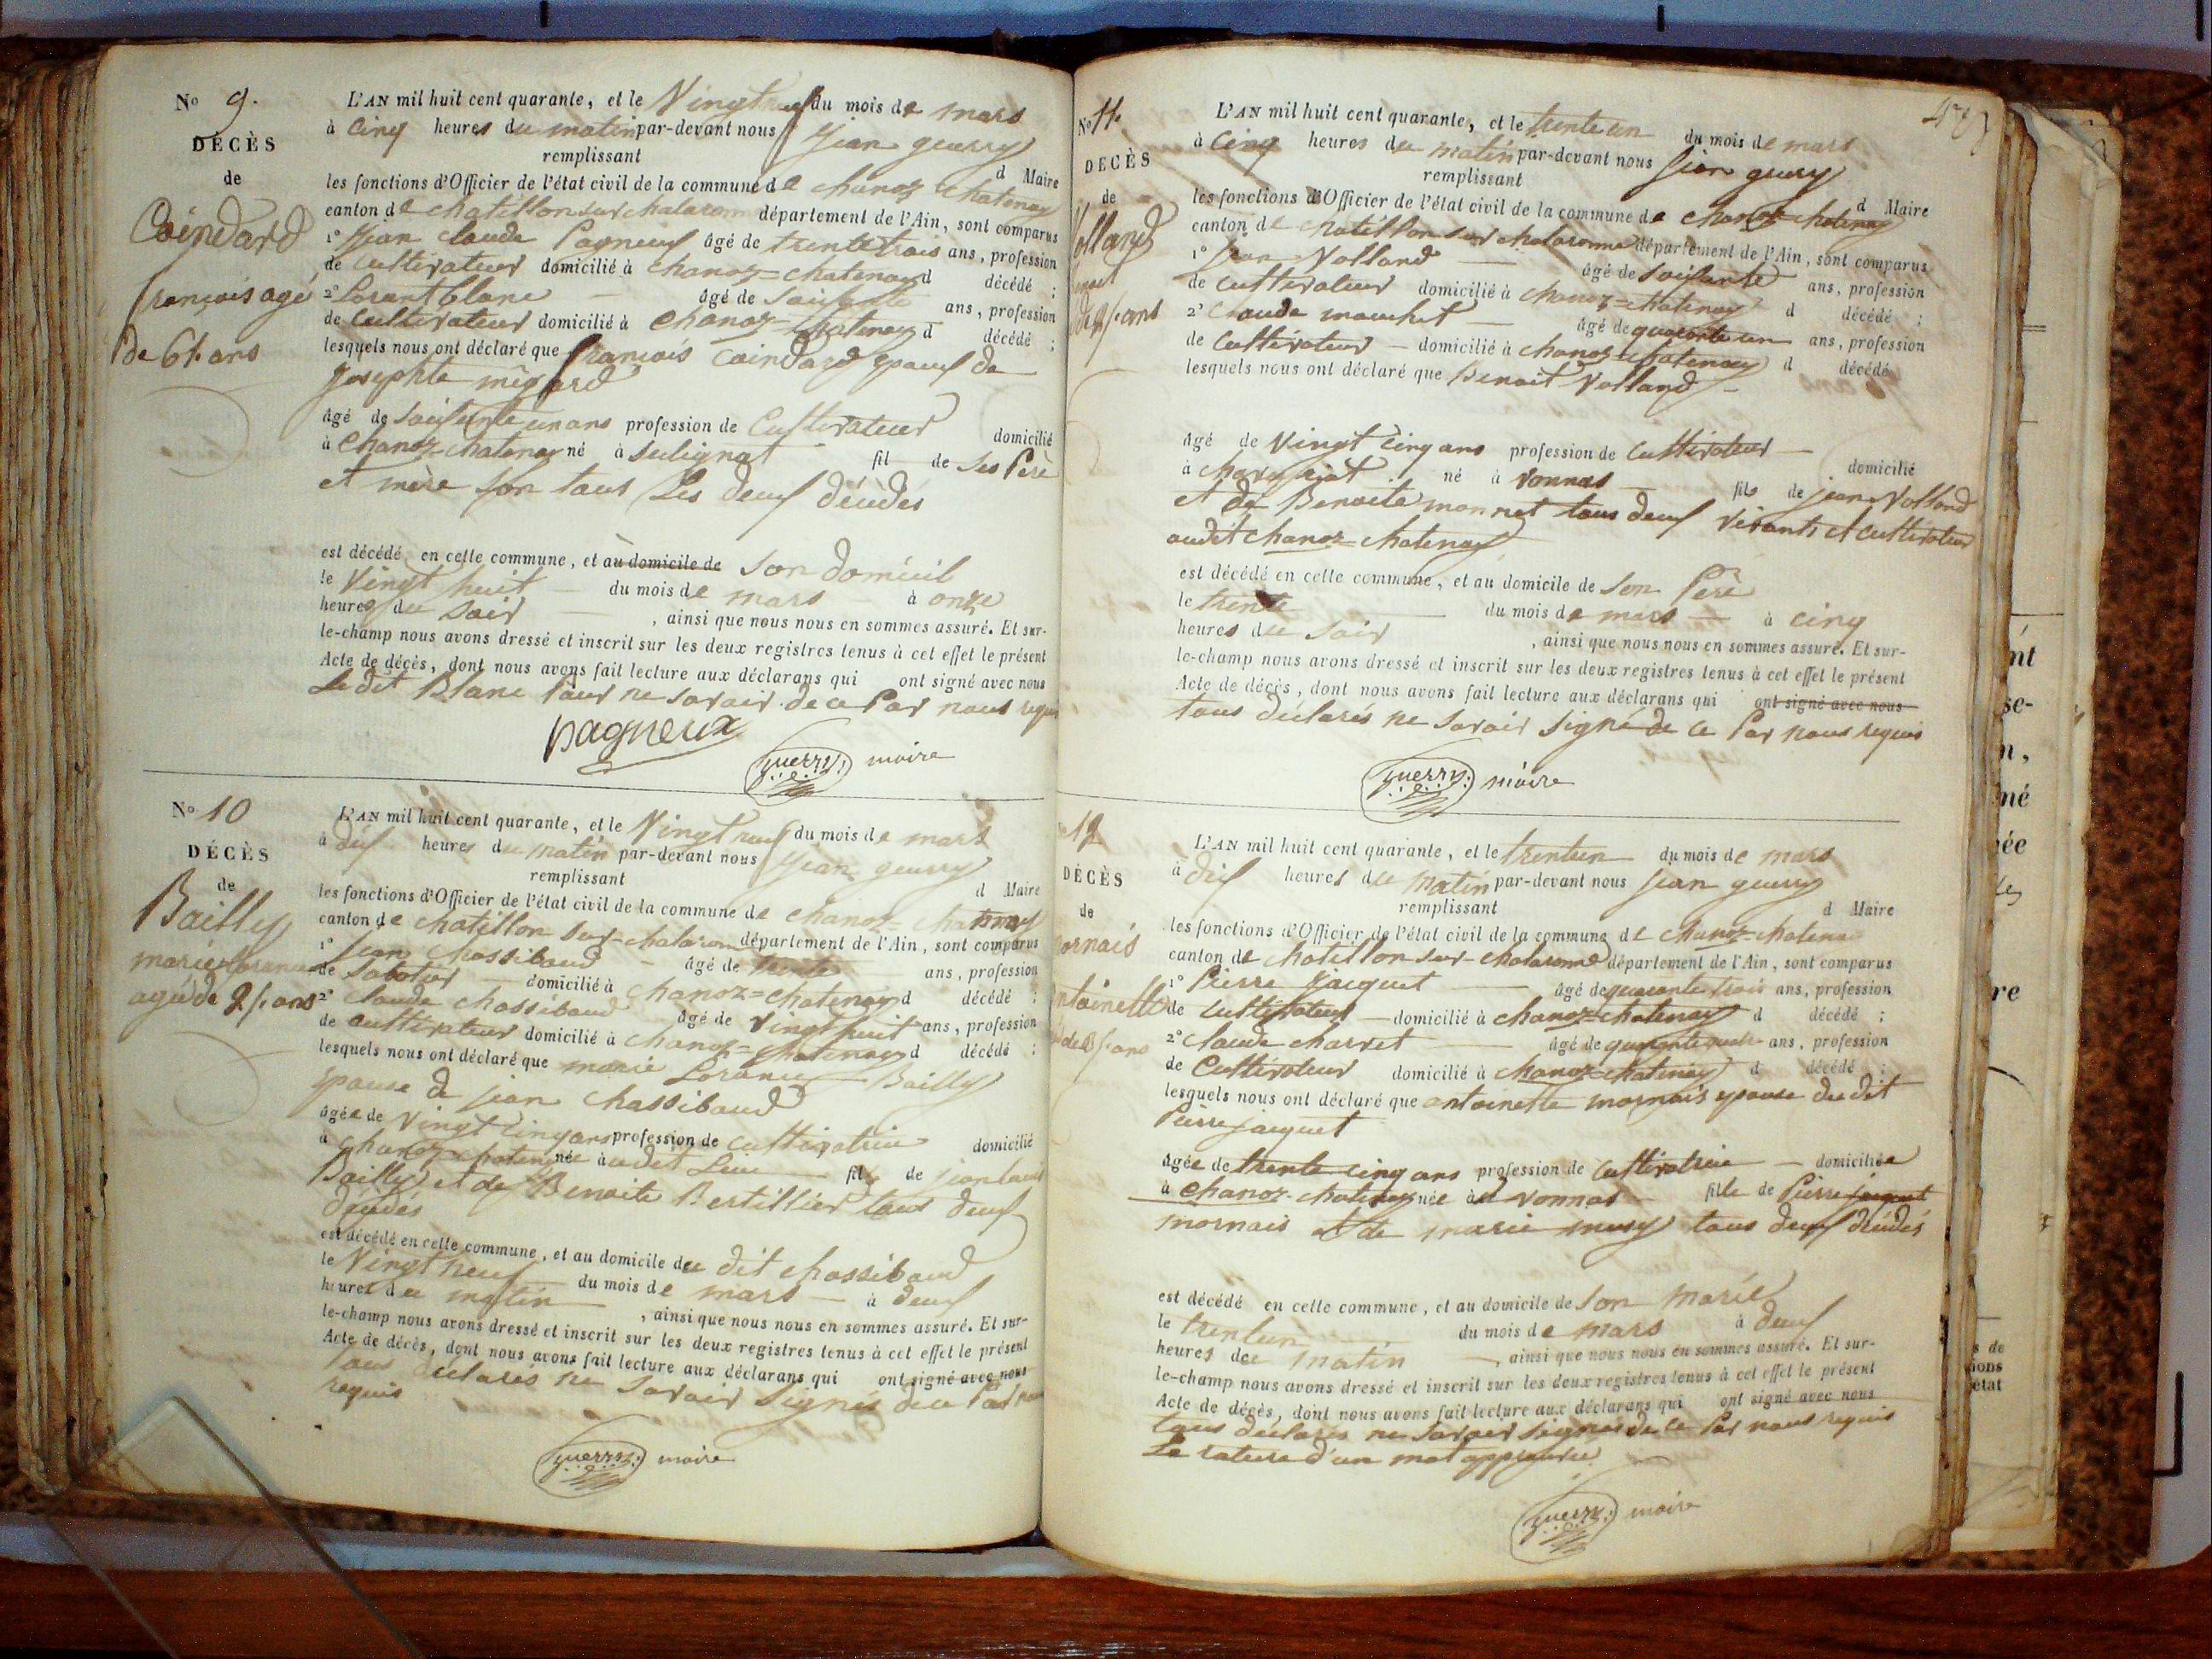 No 9.
DÉCÈS
de
Coindard
françois agé
de 61 ans
L'AN mil huit cent quarante, et le Vingt neuf du mois de mars
à Cinq heures du matin par-devant nous jean guerry
remplissant d Maire
les fonctions d'Officier de l'état civil de la commune de chanoz chatenay
canton de chatillon sur chalaronne département de l'Ain, sont comparus
1° jean claude Pagneux âgé de trente trois ans, profession
de cultivateur domicilié à chanoz=chatenay d décédé ;
2° Lorant blanc âgé de soixante ans, profession
de cultivateur domicilié à chanoz=chatenay d décédé ;
lesquels nous ont déclaré que françois Coindard epoux de
josephte
âgé de soixante un ans profession de Cultivateur domicilié
à Chanoz-chatenay né à sulignat fil de ses Père
et mère son tous Les deux décédés
est décédé en celle commune, et au domicile de son domicil
le Vingt huit du mois de mars à onze
heures du soir , ainsi que nous nous en sommes assuré. Et sur-
le-champ nous avons dressé et inscrit sur les deux registres tenus à cet effet le présent
Acte de décès, dont nous avons fait lecture aux déclarans qui ont signé avec nous
Le dit Blanc Pour ne savoir de ce Par nous requis
pagneux
guerry maire
No 10
DÉCÈS
de
Bailly
marie Loranse
agée de 25 ans
L'AN mil huit cent quarante, et le Vingt neuf du mois de mars
à dix heures du matin par-devant nous jean guerry
remplissant d Maire
les fonctions d'Officier de l'état civil de la commune de chanoz=chatenay
canton de chatillon sur chalaronne département de l'Ain, sont comparus
1° jean chassibaud âgé de trente ans, profession
de sabotier domicilié à chanoz=chatenay d décédé ;
2° claude chassibaud âgé de vingt huit ans, profession
de cultivateur domicilié à chanoz=chatenay d décédé ;
lesquels nous ont déclaré que marie Loranse Bailly
epouse de jean chassibaud
âgée de vingt cinq ans profession de cultivatrice domicilié
à chanoz chatenay née à udit Lieu fille de jean Louis
Bailly et de Benoite Bertillier tous deux
décédés
est décédé en celle commune, et au domicile du dit chassibaud
le Vingt neuf du mois de mars à deux
heures du matin , ainsi que nous nous en sommes assuré. Et sur-
le-champ nous avons dressé et inscrit sur les deux registres tenus à cet effet le présent
Acte de décès, dont nous avons fait lecture aux déclarans qui ont signé avec nous
tous déclarés ne savoir signés de ce Par nous
requis
guerry maire
No 11.
DÉCÈS
de
Volland
25 ans
L'AN mil huit cent quarante, et le trente un du mois de mars
à Cinq heures du matin par-devant nous jean guerry
remplissant d Maire
les fonctions d'Officier de l'état civil de la commune de chanoz-chatenay
canton de chatillon sur chalaronne département de l'Ain, sont comparus
1° jean Volland âgé de soixante ans, profession
de cultivateur domicilié à chanoz=chatenay d décédé ;
2° claude mouchet âgé de quarante un ans, profession
de Cultivateur domicilié à chanoz chatenay d décédé
lesquels nous ont déclaré que Benoit Volland
âgé de Vingt cinq ans profession de cultivateur domicilié
à né à vonnas fils de jean Volland
et de Benoite monnet tous deux vivants et cultivateur
audit chanoz=chatenay
est décédé en celle commune, et au domicile de son Père
le trente du mois de mars à cinq
heures du soir , ainsi que nous nous en sommes assuré. Et sur-
le-champ nous avons dressé et inscrit sur les deux registres tenus à cet effet le présent
Acte de décès, dont nous avons fait lecture aux déclarans qui ont signé avec nous
tous déclarés ne savoir signé de ce Par nous requis
guerry maire
12
DÉCÈS
de
L'AN mil huit cent quarante, et le trentun du mois de mars
à dix heures du matin par-devant nous jean guerry
remplissant d Maire
les fonctions d'Officier de l'état civil de la commune de chanoz-chatenay
canton de chatillon sur chalaronne département de l'Ain, sont comparus
1° Pierre jacquet âgé de quarante trois ans, profession
de cultivateur domicilié à chanoz=chatenay d décédé ;
2° claude charvet âgé de quarante quatre ans, profession
de Cultivateur domicilié à chanoz=chatenay d décédé ;
lesquels nous ont déclaré que antoinette mornais epouse du dit
Pierre jacquet
âgée de trente cinq ans profession de cultivatrice domiciliée
à chanoz-chatenay née à vonnas fille de Pierre jacquet
mornais et de marie musy tous deux décédés
est décédé en celle commune, et au domicile de son marie
le trentun du mois de mars à deux
heures du matin , ainsi que nous nous en sommes assuré. Et sur-
le-champ nous avons dressé et inscrit sur les deux registres tenus à cet effet le présent
Acte de décès, dont nous avons fait lecture aux déclarans qui ont signé avec nous
tous déclarés ne savoir signés de ce Par nous requis
La rature d'un mot approuvée
guerry maire